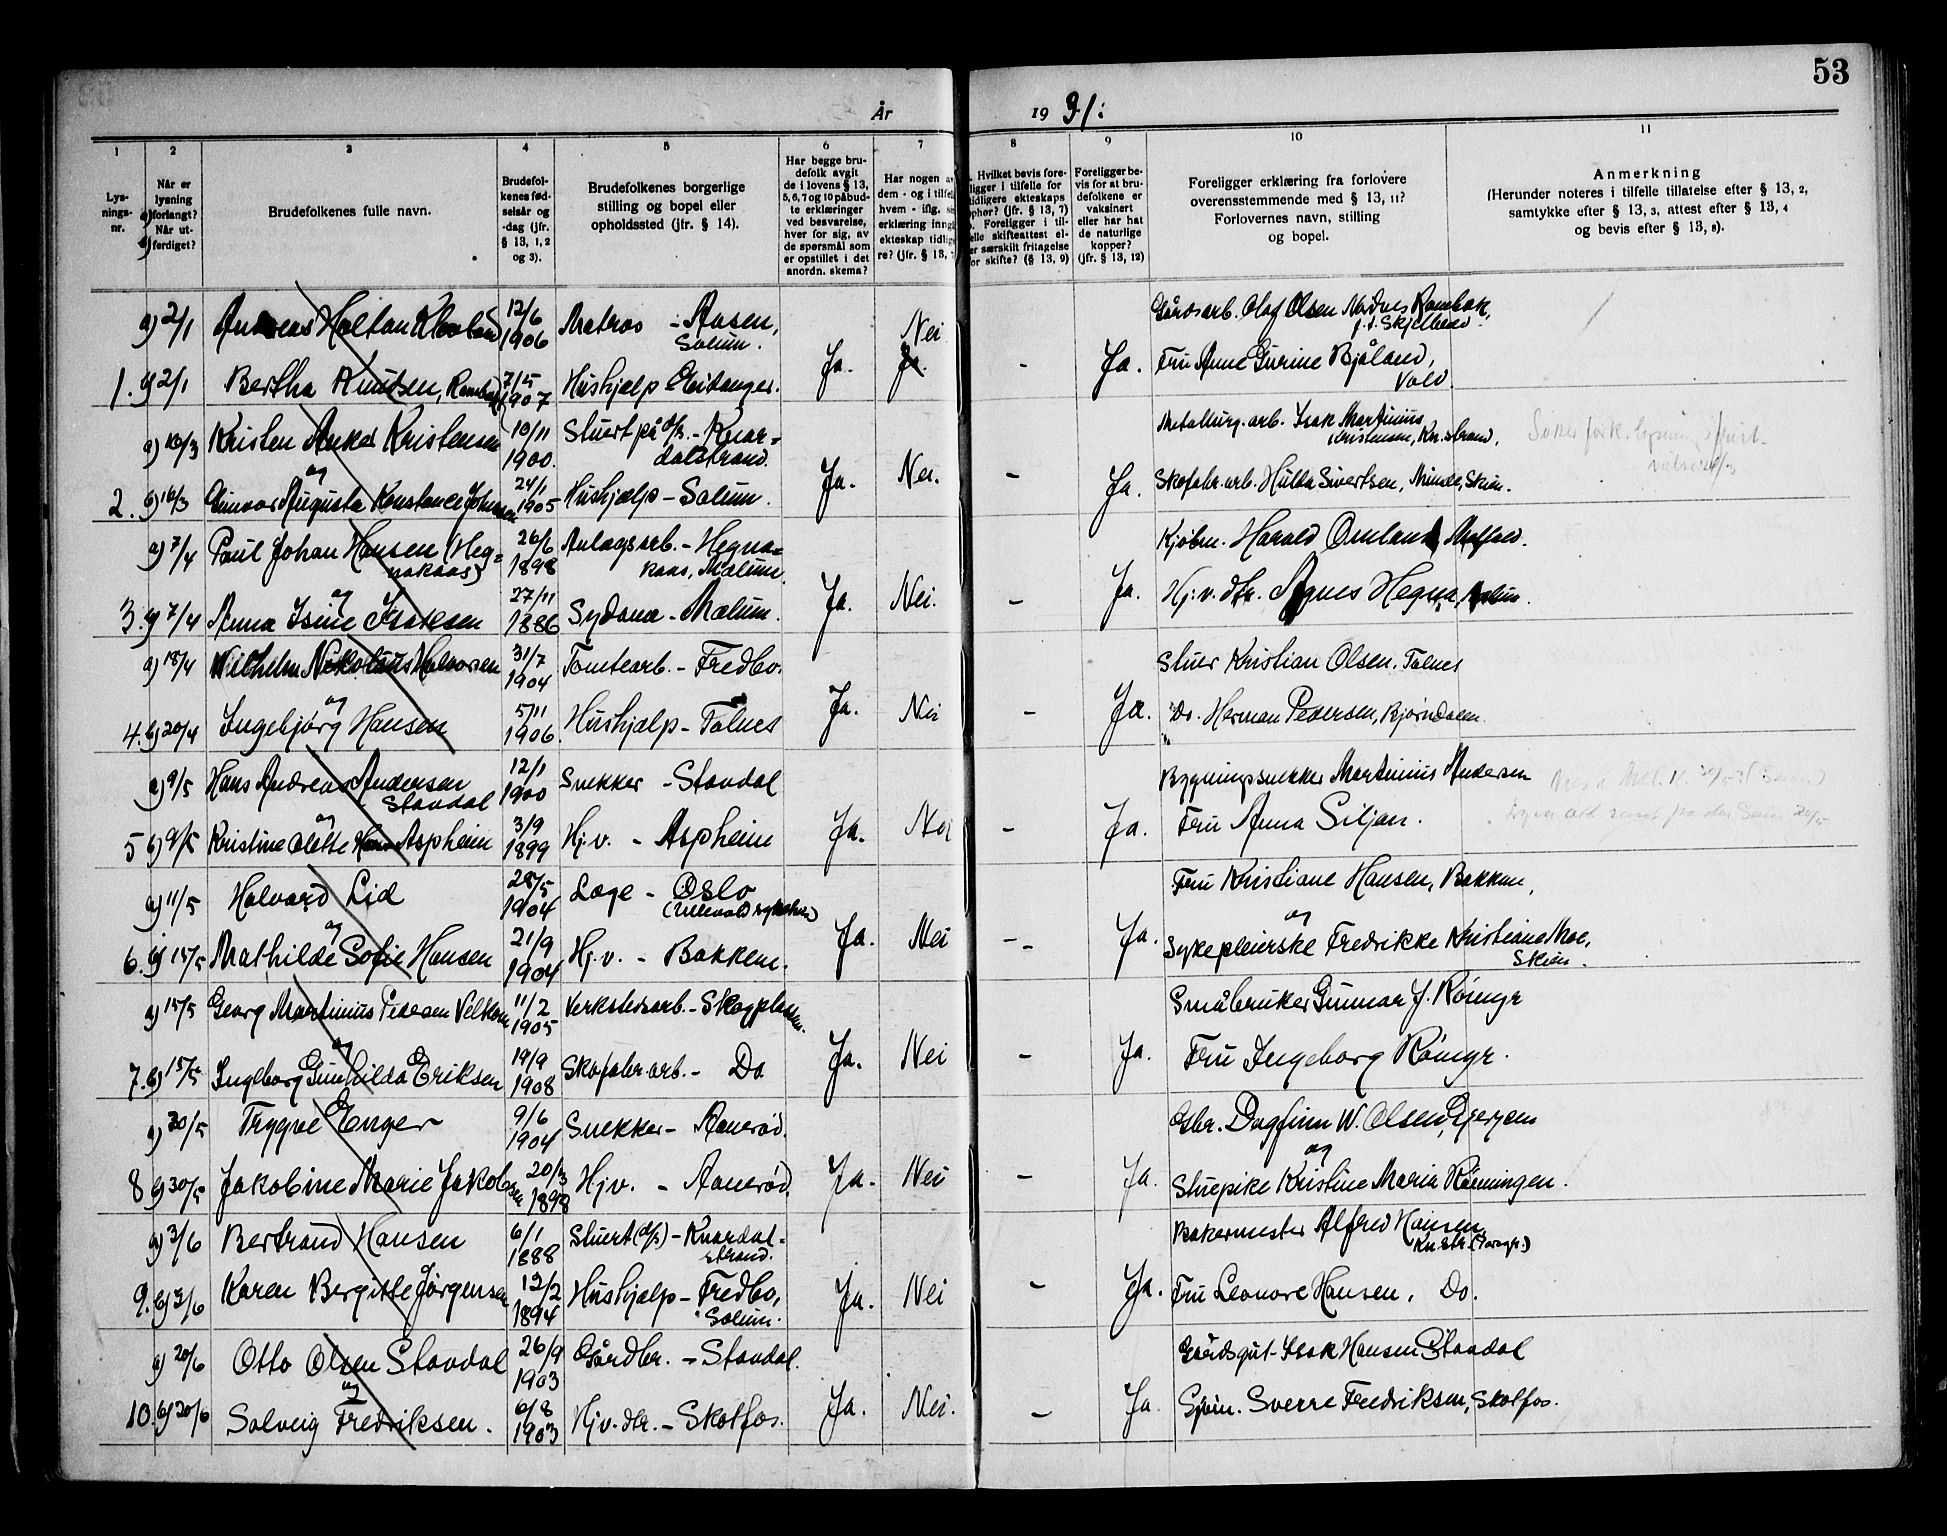 53
År 1931:
1
2
3
4
5
6
7
8
9
10
11
Lysnings-nr.
Når er lysning forlangt? Når utferdiget?
Brudefolkenes fulle navn.
Brudefolkenes fødselsår og -dag (jfr. § 13, 1, 2 og 3).
Brudefolkenes borgerlige stilling og bopel eller opholdssted (jfr. § 14).
Har begge brudefolk avgit de i lovens § 13, 5, 6, 7 og 10 påbudte erklæringer ved besvarelse, hver for sig, av de spørsmål som er opstillet i det anordn. skema?
Har nogen av dem - og i tilfelle hvem - iflg. erklæring ekteskap tidligere? (jfr. § 13,
Hvilket bevis foreligger i tilfelle for tidligere ekteskaps ophør? (jfr. § 13, 7) Foreligger i tilfelle skifteattest eller særskilt fritagelse for skifte? (§ 13, 9)
Foreligger bevis for at brudefolkene er vaksinert eller har hat de naturlige kopper? (jfr. § 13, 12)
Foreligger erklæring fra forlovere overensstemmende med § 13, 11? Forlovernes navn, stilling og bopel.
Anmerkning (Herunder noteres i tilfelle tillatelse efter § 13, 2, samtykke efter § 13, 3, attest efter § 13, 4 og bevis efter § 13, 8).
a) 2/1 Andreas Holtan 12/6 1906 Matros - Aasen, Solum. Nei Gårdsarb. Olaf Olsen
1. b) 2/1 Bertha Knutsen, 7/5 1907 Hushjælp Eidanger. Ja. Ja. - Ja. Fru Anne Gurine Bjåland, Vold
a) 10/3 Kristen Anker Kristensen 10/11 1900. Stuert på d/s. - Knardalstrand. Metallurg. arb. Isak Martinius Kristensen, Kn.strand,
og
2. b) 16/3 Gunvor Augusta Konstance Johnsen 24/1 1905 Hushjælp - Solum. Ja. Nei. - Ja. Skofabr.arb. Hulda Sivertsen, Minde, Skien.
a) 7/4 Paul Johan Hansen (Hegnakaas) 26/6 1898 Anlagsarb. - Hegnakaas, Mælum. Kjøbm. Harald Omland
og
3. b) 7/4 Anna Isine Isaksen 27/11 1886 Sydame - Mælum. Ja. Nei. - Ja. Hj.v. dtr. Agnes Hegna, Mælum.
a) 18/4 Wilhelm Nikolaus Halvorsen 31/7 1904 Tomtearb. - Fredbo. Stuer Kristian Olsen. Tolnes
og
4. b) 20/4 Ingebjørg Hansen 5/11 1906. Hushjælp - Tolnes Ja. Nei - Ja. Do. Herman Pedersen, Bjørndalen.
a) 9/5 Hans Andreas Andersen Stavdal 12/1 1900 Snekker - Stavdal Bygningssnekker Martinius Andersen
og
5 b) 9/5 Kristine Olette Aspheim 3/9 1899 Hj.v. - Aspheim Ja. Nei - Ja. Fru Anna Siljan.
a) 11/5 Halvard Lid 28/5 1904 Læge - Oslo (Ullevål sykehus) Fru Kristiane Hansen, Bakken,
og og
6. b) 15/5 Mathilde Sofie Hansen 21/9 1904 Hj.v. - Bakken. Ja. Nei - Ja. Sykepleierske Fredrikke Kristiane Moe, Skien.
a) 15/5 Georg Martinius Pedersen 11/2 1905 Verkstedsarb. - Skogplassen. Småbruker Gunnar J. Röimyr
og
7. b) 15/5 Ingeborg Gunhilda Eriksen 19/9 1908 Skofabr.arb. - Do Ja. Nei - Ja. Fru Ingeborg Röimyr.
a) 30/5 Trygve Enger 9/6 1904 Snekker - Aanerød. Gbr. Dagfinn W. Olsen, Gjerjem
og
8 b) 30/5 Jakobine Marie Jakobsen 20/3 1898 Hj.v. - Aanerød. Ja. Nei - Ja. Stuepike Kristine Maria Rönningen.
a) 3/6 Bertrand Hansen 6/1 1888 Stuert (d/s) - Knardalstrand. Bakermester Alfred Hansen Kn.str. (Porsgr.)
9. b) 3/6 Karen Bergitte Jørgensen 12/2 1894 Hushjælp - Fredbo, Solum. Ja. Nei - Ja. Fru Leonore Hansen, Do.
a) 20/6 Otto Olsen Stavdal 26/9 1903 Gårdbr. - Stavdal. Gårdsgut Isak Hansen Stavdal
og
10. b) 20/6 Solveig Fredriksen. 6/8 1903 Hj.v. dtr. - Skotfos. Ja. Nei. - Ja. Sverre Fredriksen, Skotfos.